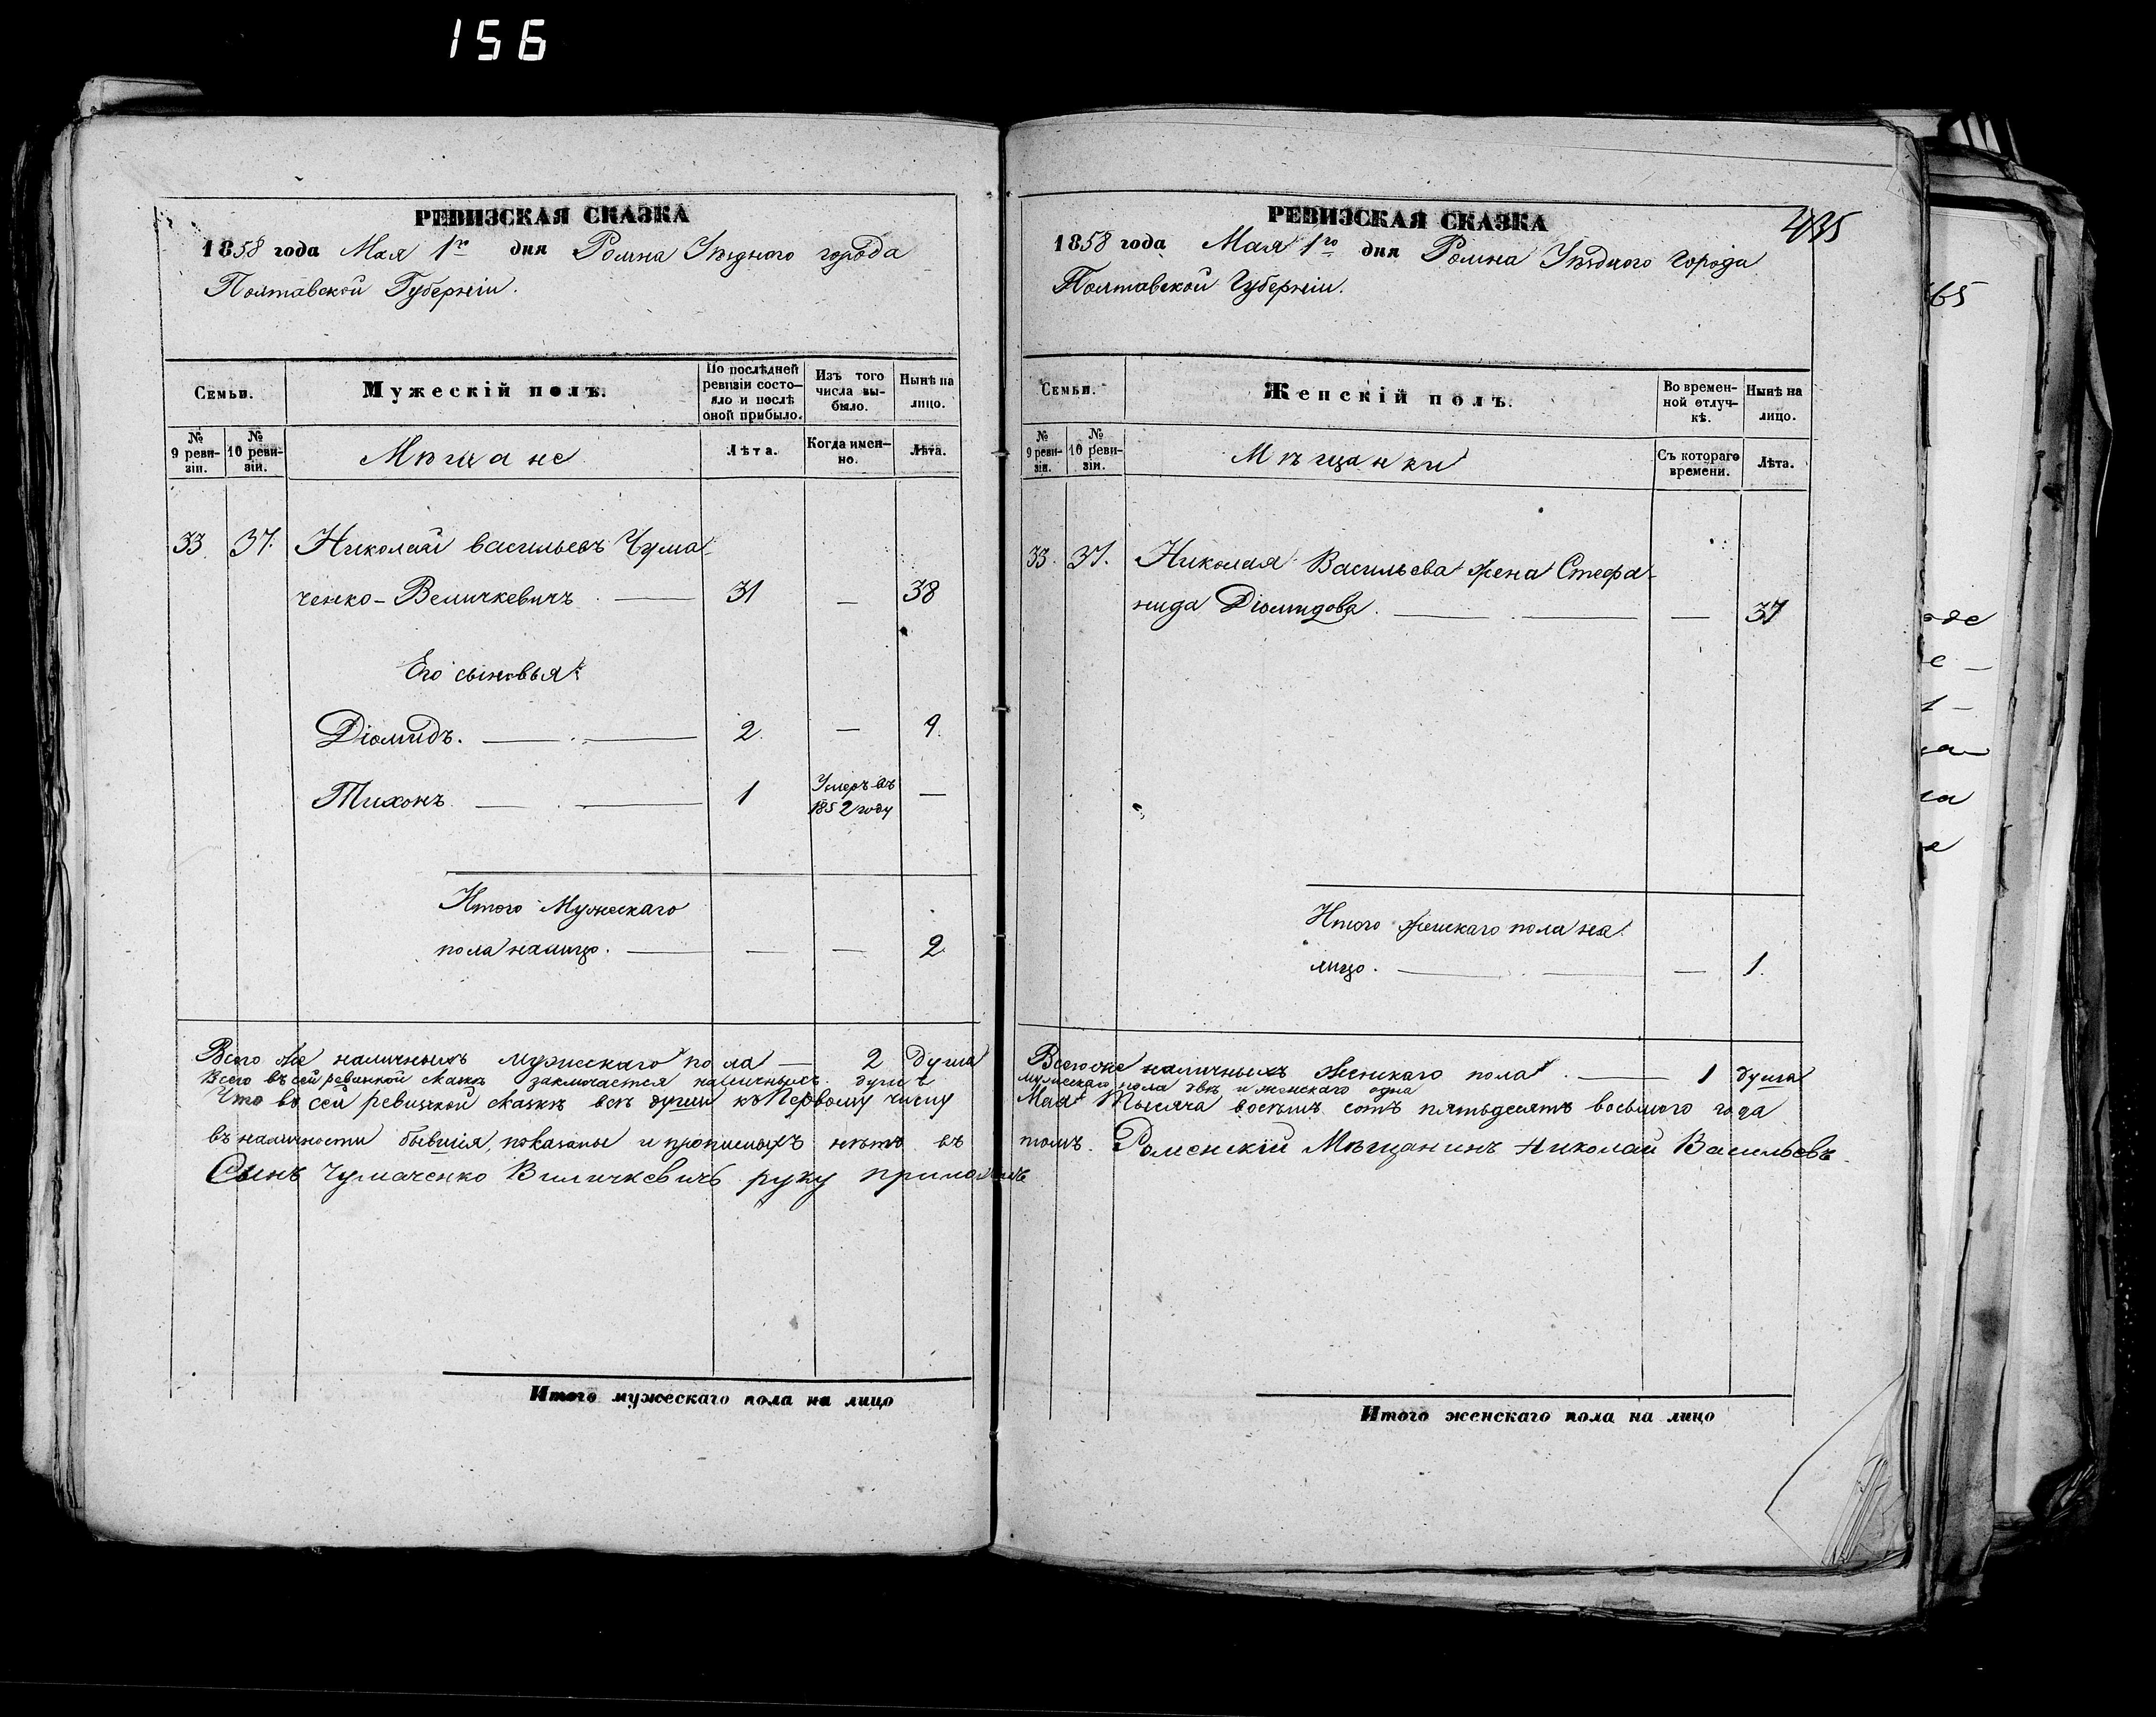 156
РЕВИЗСКАЯ СКАЗКА
1858 года Мая 1го дня Ромна Уѣзднаго города
Полтавской Губерніи.
Семьи.
Мужескій полъ.
По послѣдней ревизіи состояло и послѣ оной прибыло.
Изъ того числа выбыло.
Нынѣ на лицо.
№ 9 ревизіи.
№ 10 ревизіи.
Мѣщане
Лѣта.
Когда именно.
Лѣта.
33. 37. Николай Васильевъ Чума-
ченко-Величкевичъ. — 31 — 38
Его сыновья:
Діомидъ. — 2. — 9.
Тихонъ. — 1 Умеръ въ 1852 году —
Итого Мужескаго
пола налицо. — — — 2.
Всего же наличныхъ мужескаго пола — 2 душа
Всего въ сей ревизской сказкѣ заключается наличныхъ душъ
Что во сей ревизской сказкѣ всѣ души къ Первому числу
въ наличности бывшія, показаны и прописныхъ нѣтъ въ
Сынъ Чумаченко Виличкевичъ руку приложилъ
Итого мужескаго пола на лицо
РЕВИЗСКАЯ СКАЗКА
435
1858 года Мая 1го дня Ромна Уѣзднаго города
Полтавской Губерніи.
Семьи.
Женскій полъ.
Во временной отлучкѣ.
Нынѣ на лицо.
№ 9 ревизіи.
№ 10 ревизіи.
Мѣщанки
Съ котораго времени.
Лѣта.
33. 37. Николая Васильева жена Стефа-
нида Діомидова. — — — 37
Итого женскаго пола на
лицо. — — — 1.
Всего же наличныхъ женскаго пола. — 1 душа
мужескаго пола двѣ и женскаго одна
Мая Тысяча восемь сотъ пятьдесятъ восьмого года
томъ. Роменскій Мѣщанинъ Николай Васильевъ
Итого женскаго пола на лицо
65